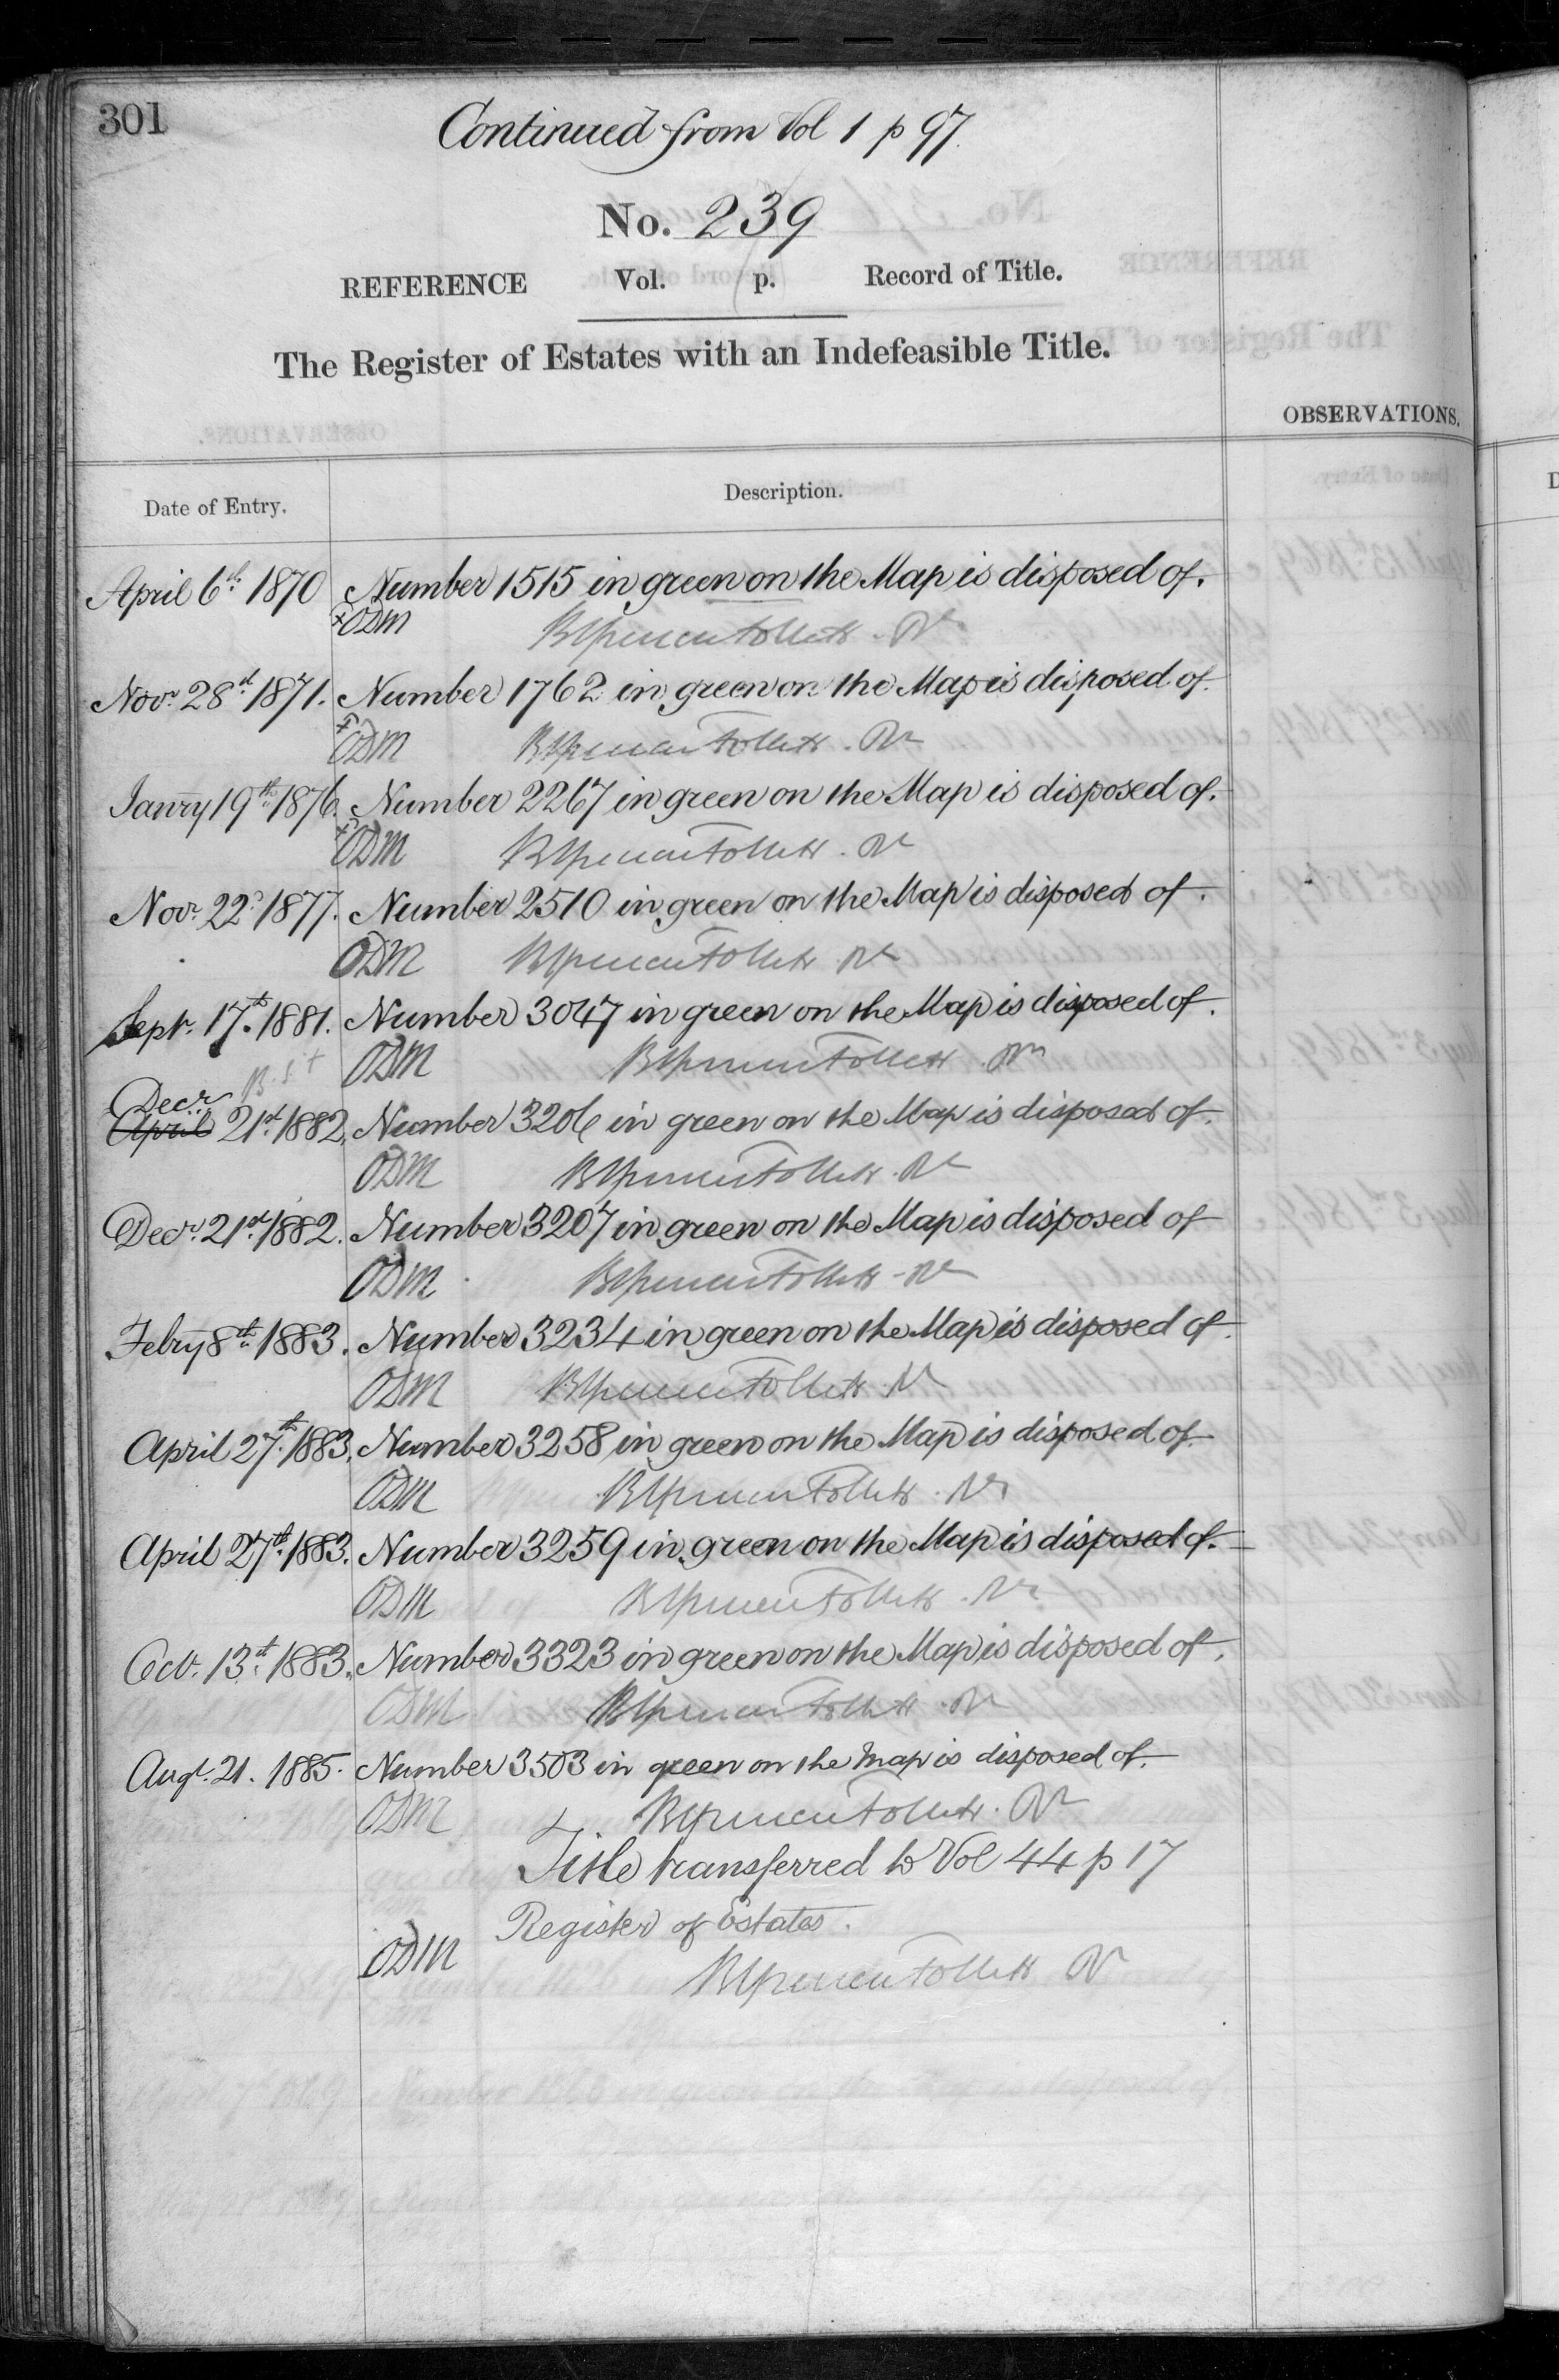 301
Continued from Vol 1 p 97.
No. 239
REFERENCE Vol. p. Record of Title.
The Register of Estates with an Indefeasible Title.
OBSERVATIONS.
Date of Entry. Description.
April 6th 1870 Number 1515 in green on the Map is disposed of.
ODM
Novr. 28th 1871. Number 1762 in green on the Map is disposed of.
ODM
Janry 19th 1876. Number 2267 in green on the Map is disposed of.
ODM
Novr. 22d 1877. Number 2510 in green on the Map is disposed of.
ODM
Septr. 17th 1881. Number 3047 in green on the Map is disposed of.
ODM
Decr
April 21st 1882. Number 3206 in green on the Map is disposed of.
ODM
Decr. 21st 1882. Number 3207 in green on the Map is disposed of
ODM
Febry 8th 1883. Number 3234 in green on the Map is disposed of.
ODM
April 27th 1883. Number 3258 in green on the Map is disposed of.
ODM
April 27th 1883. Number 3259 in green on the Map is disposed of.
ODM
Octr. 13th 1883. Number 3323 in green on the Map is disposed of.
ODM
Augt. 21. 1885. Number 3503 in green on the Map is disposed of.
ODM
Title transferred to Vol 44 p 17
Register of Estates.
ODM